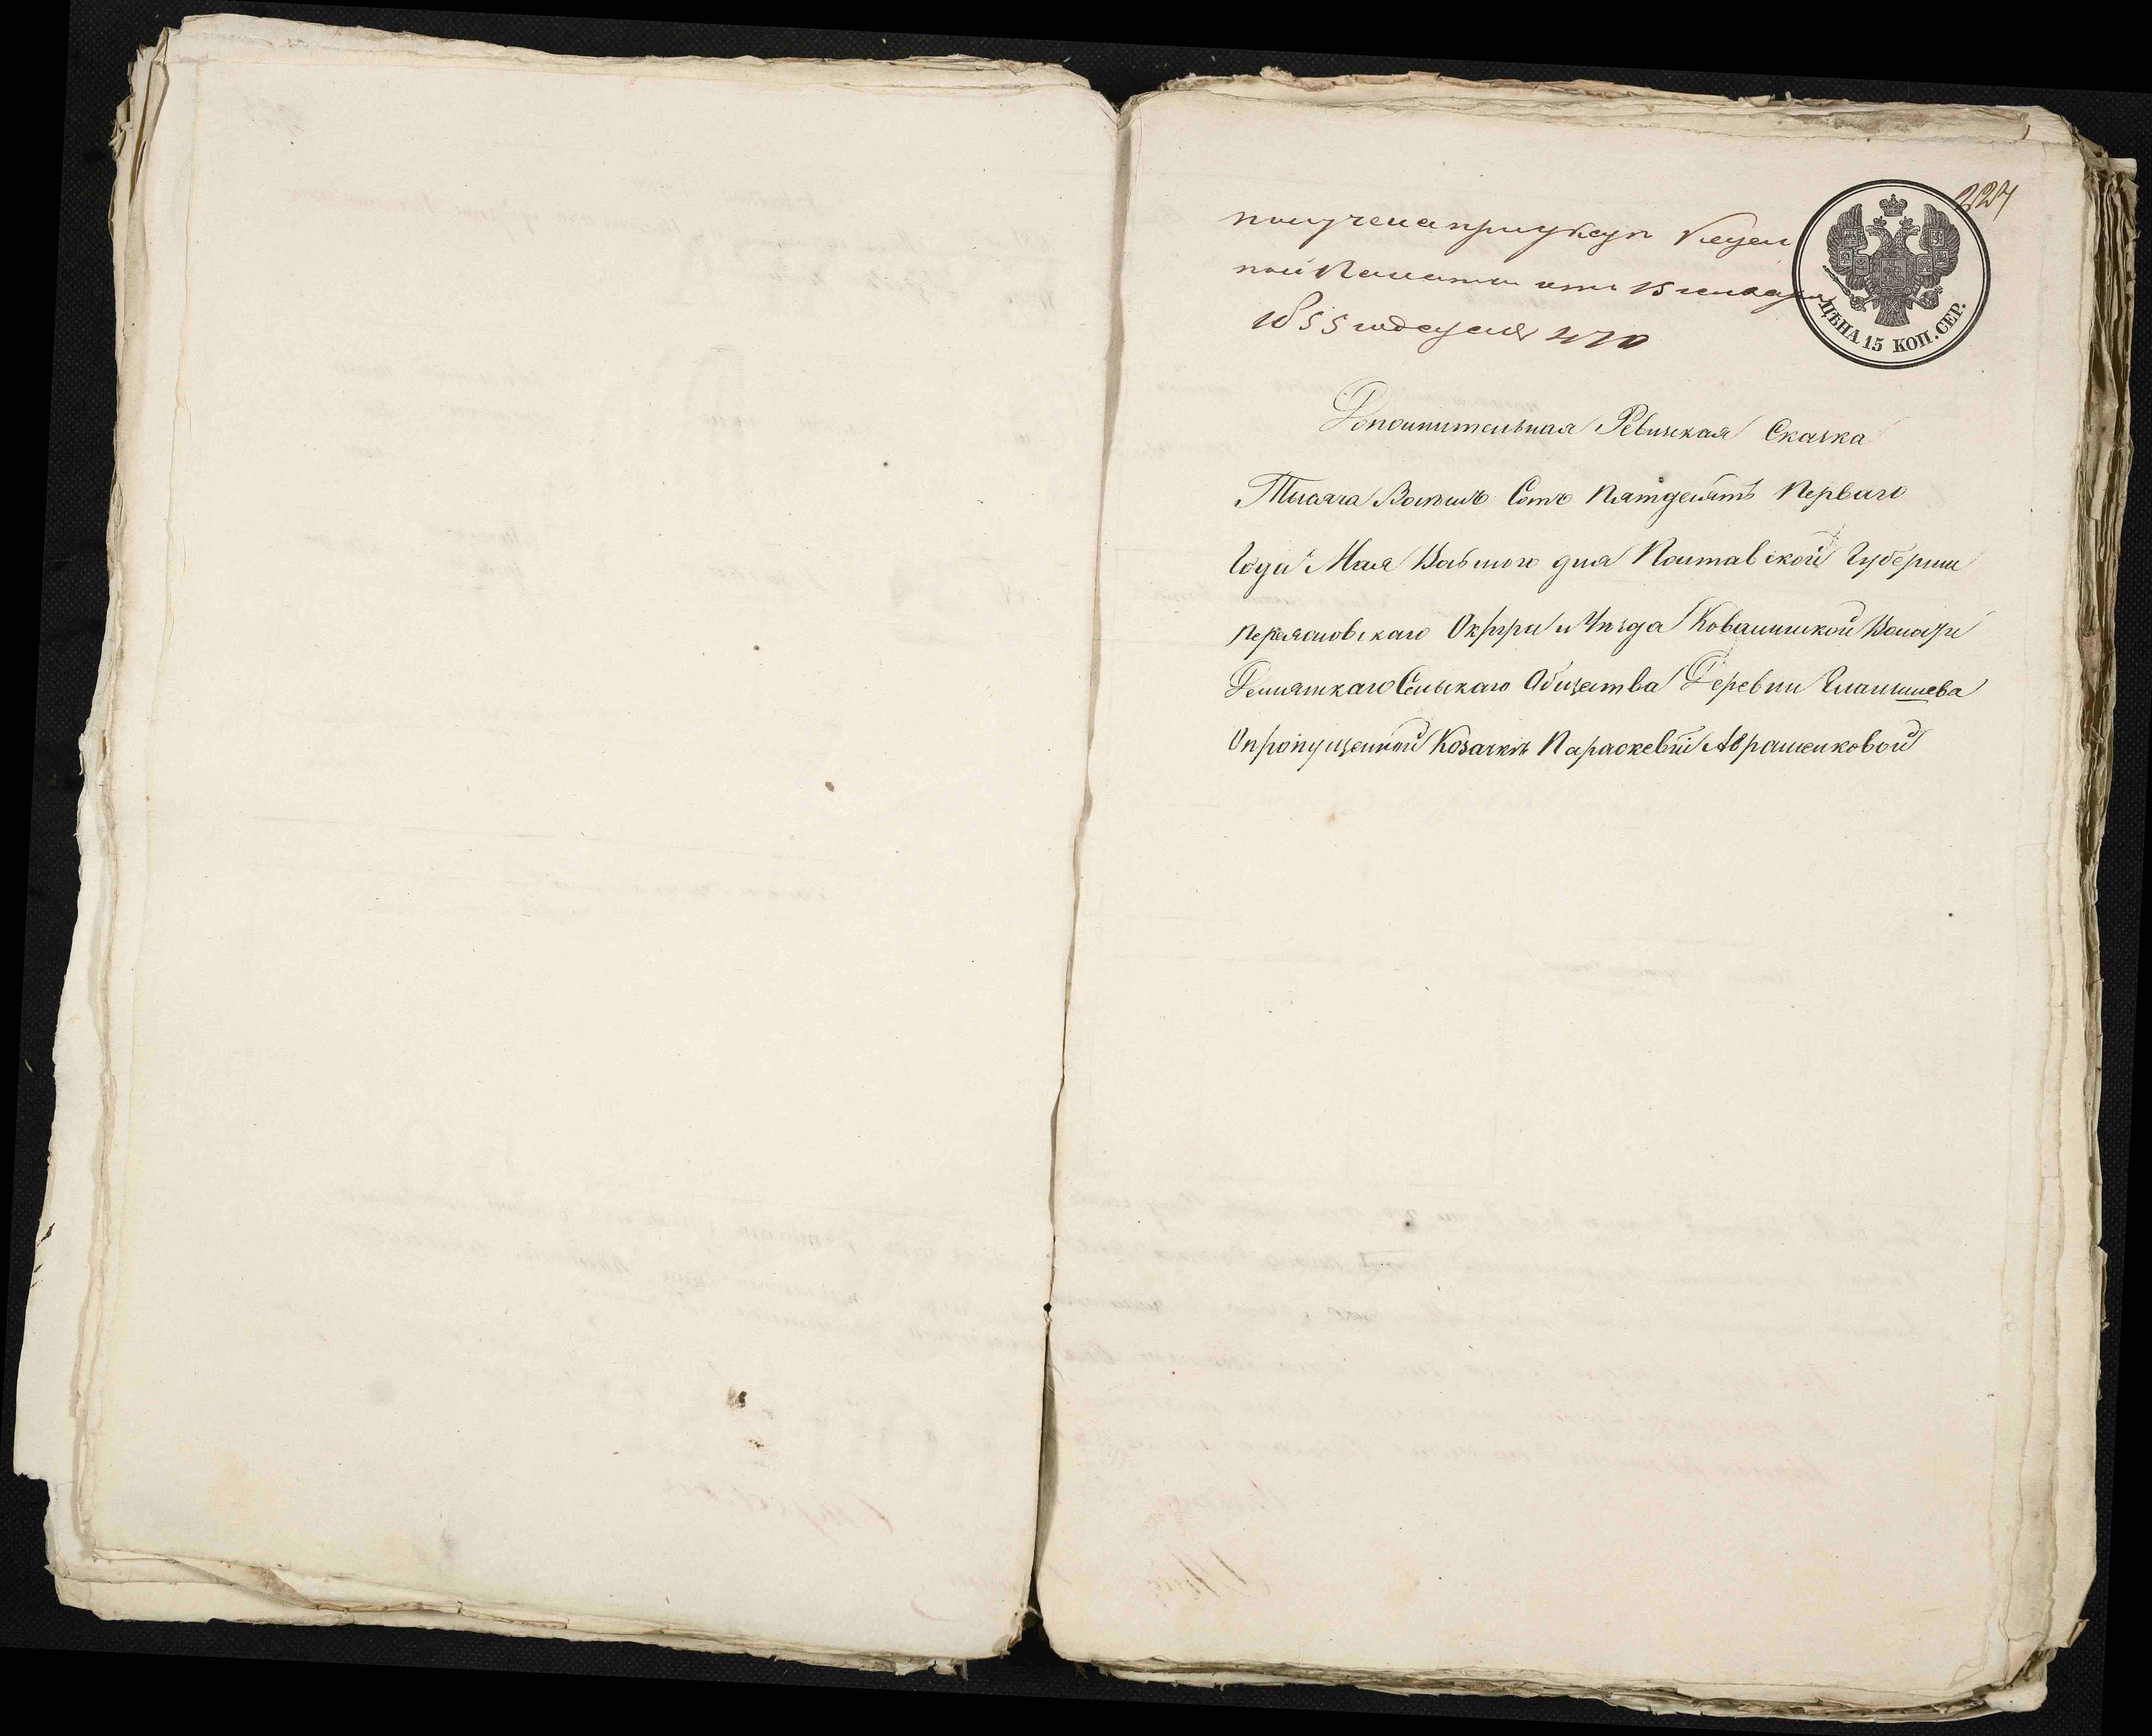 227
получена при указе Казен
ной Палаты отъ 15 января
1855 года за № 470
ЦѢНА 15 КОП. СЕР.
Дополнительная Ревизская Сказка
Тысяча Восемь Сотъ Пятдесятъ Перваго
Года Мая Восьмого дня Полтавской Губернии
Переяславскаго Округа и Уѣзда Ковалинской Волости
Демянскаго Сельскаго Общества Деревни
О пропущенной Козачкѣ Параскевіи Авраменковой